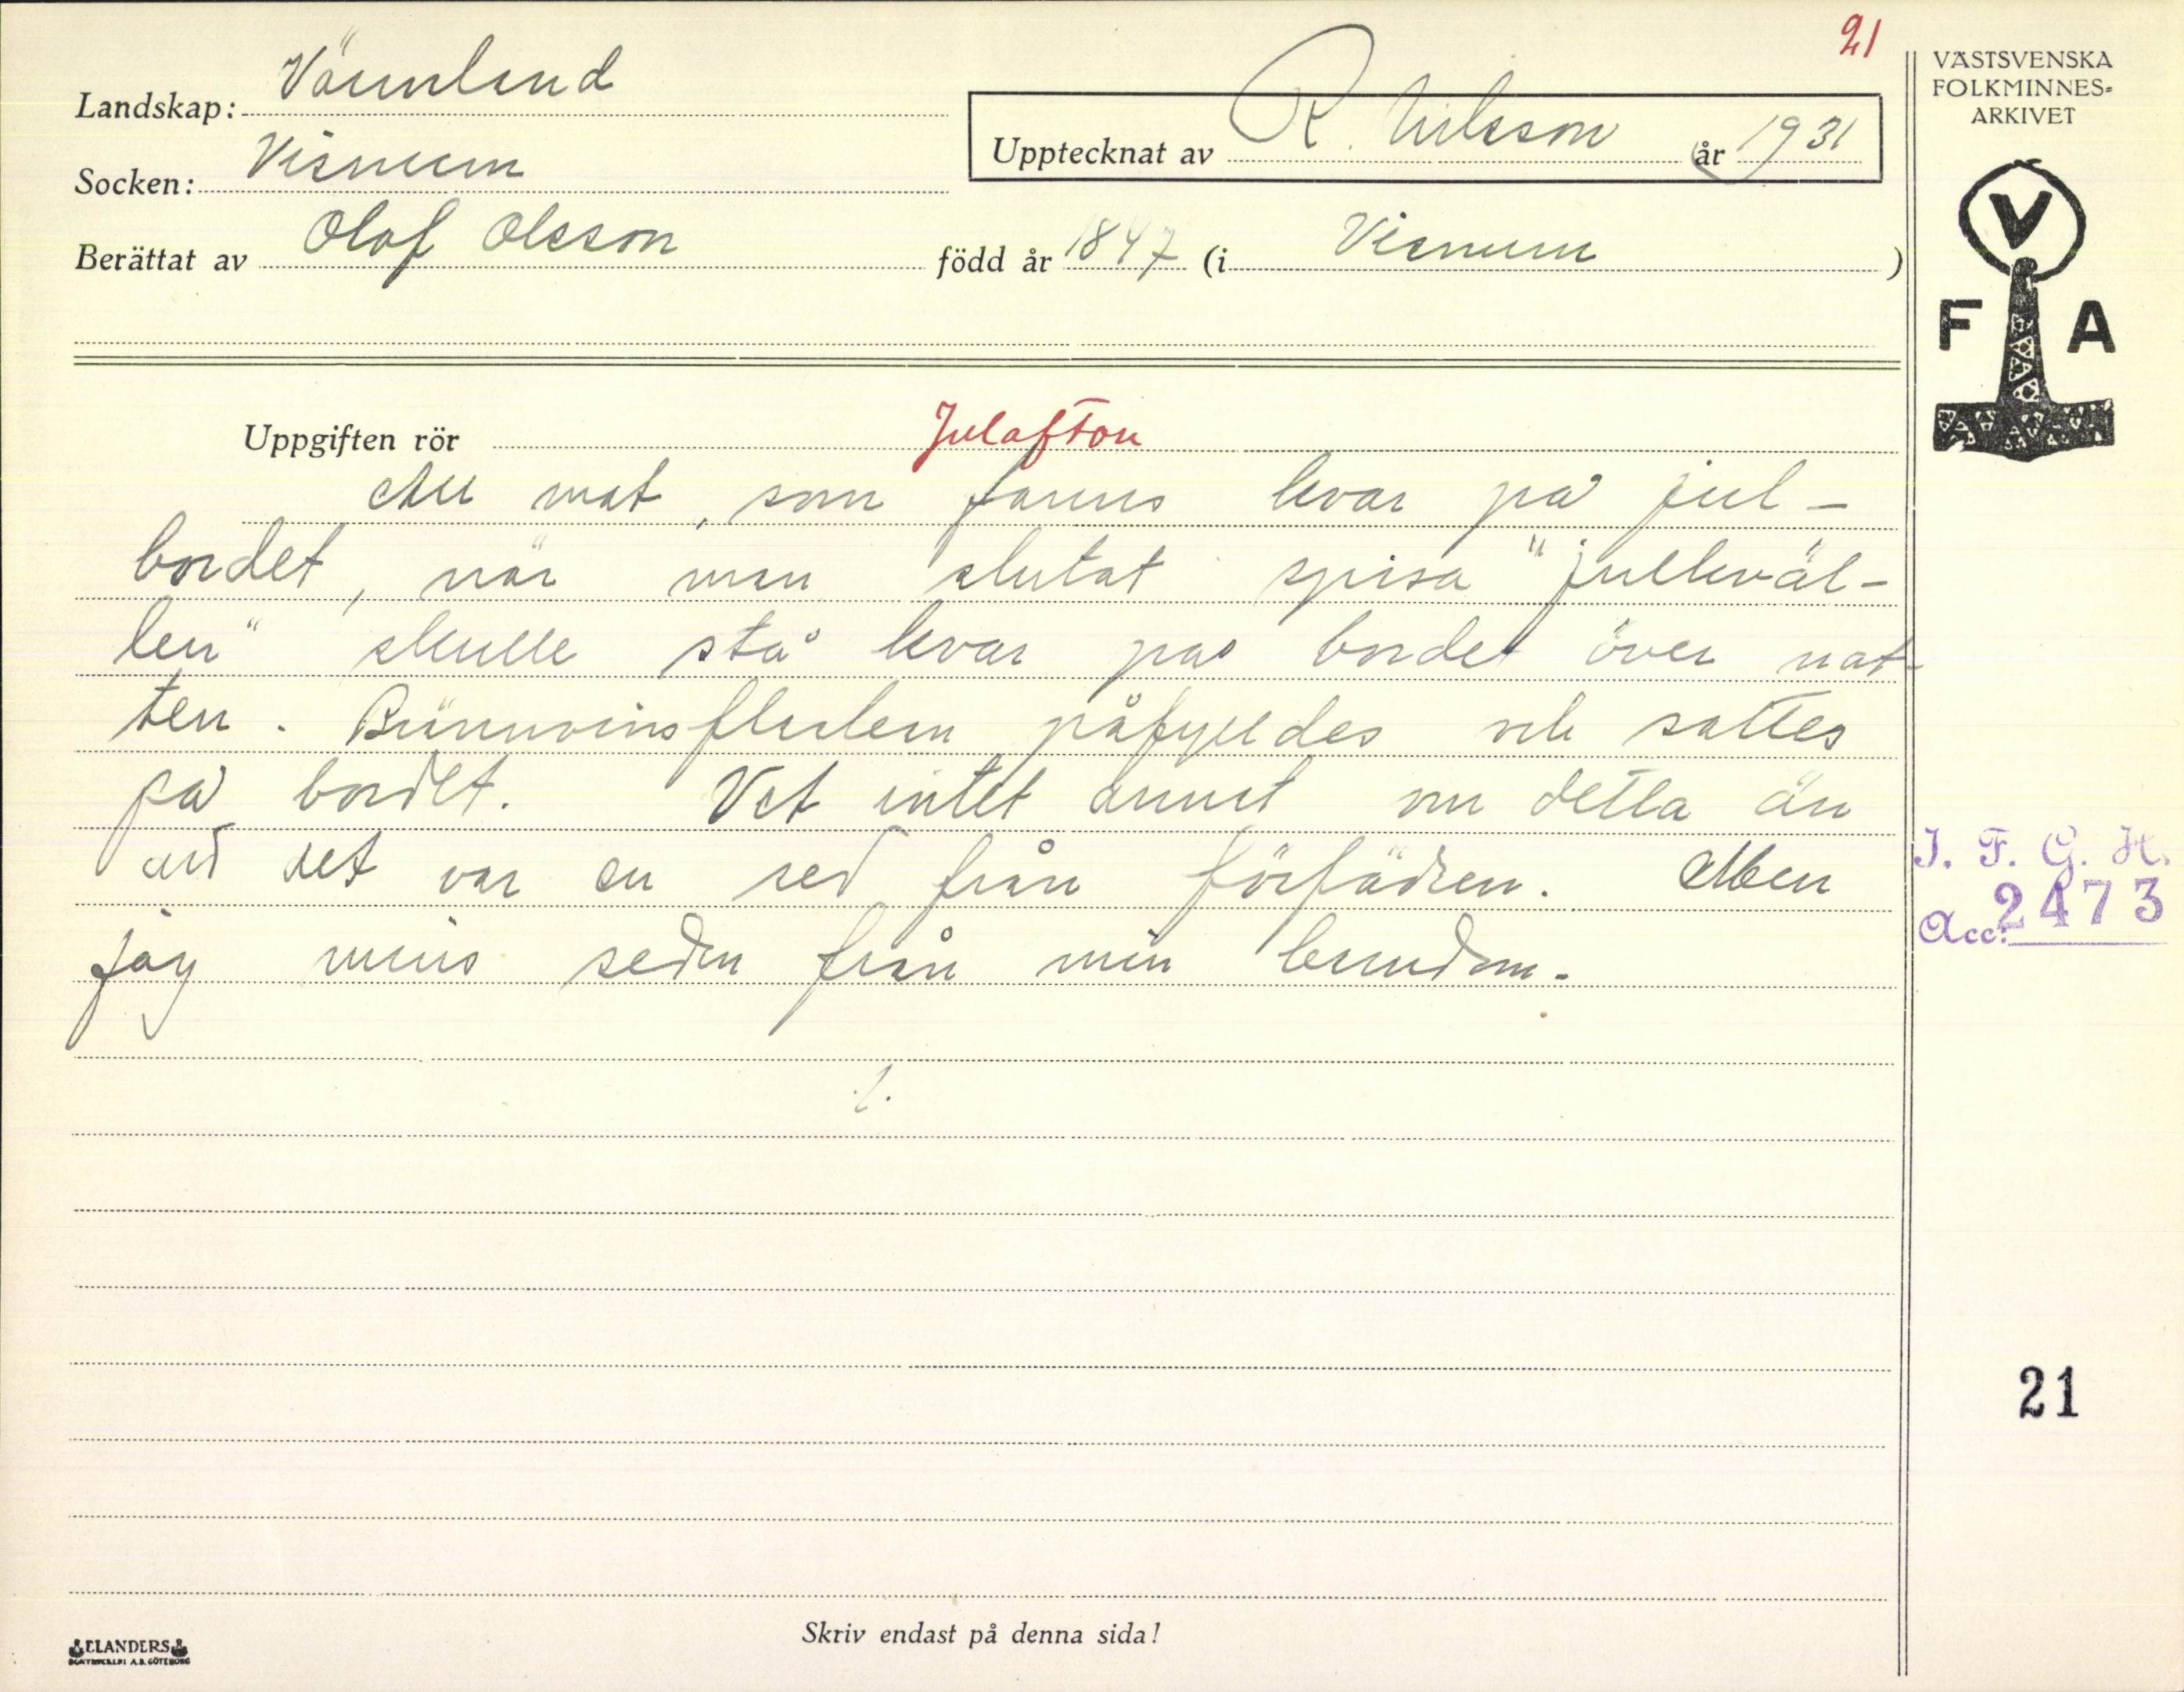 21
VÄSTSVENSKA
FOLKMINNES-
ARKIVET
Landskap: Värmland
Upptecknat av R. Nilsson år 1931
Socken: Visnum
Berättat av Olof Olsson född år 1847 (i Visnum )
V
F A
Uppgiften rör Julafton
All mat, som fanns kvar på jul-
bordet, när man slutat spisa "julkväl-
len" skulle stå kvar på bordet över nat-
ten. Brännvinsflaskan påfylldes och sattes
på bordet. Vet intet annat om detta än
att det var en sed från förfädren. Men
jag minns seden från min barndom.
J. F. G. H.
Acc: 2473
./.
21
Skriv endast på denna sida!
ELANDERS
BOKTRYCKERI A.B. GÖTEBORG